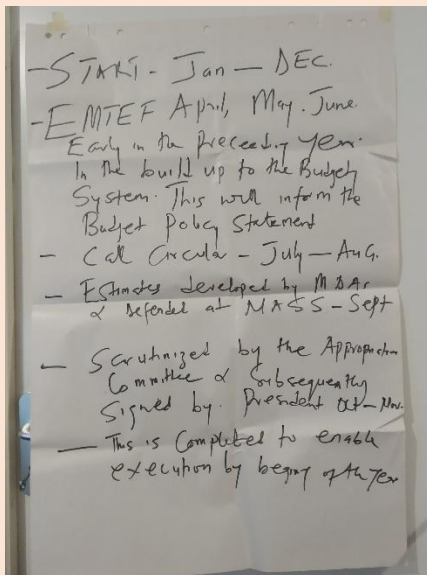 - START - Jan - DEC.
- EMTEF April, May. June.
Early in the Preceeding Year.
In the build up to the Budget
System. This will inform the
Budget Policy Statement
- Call Circular - July - Aug.
- Estimates developed by MDAs
& defended at NASS - Sept
- Scrutinized by the Appropriation
Committee & Subsequently
Signed by. President Oct - Nov.
- This is Completed to enable
execution by begining of the year